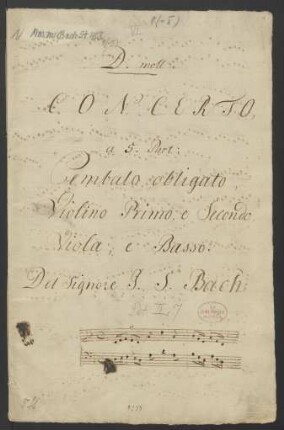 D. moll.
CONCERTO
a. 5. Part:
Cembalo obligato
Violino Primo e Secondo
Viola, e Basso.
Del Signore J. S. Bach.